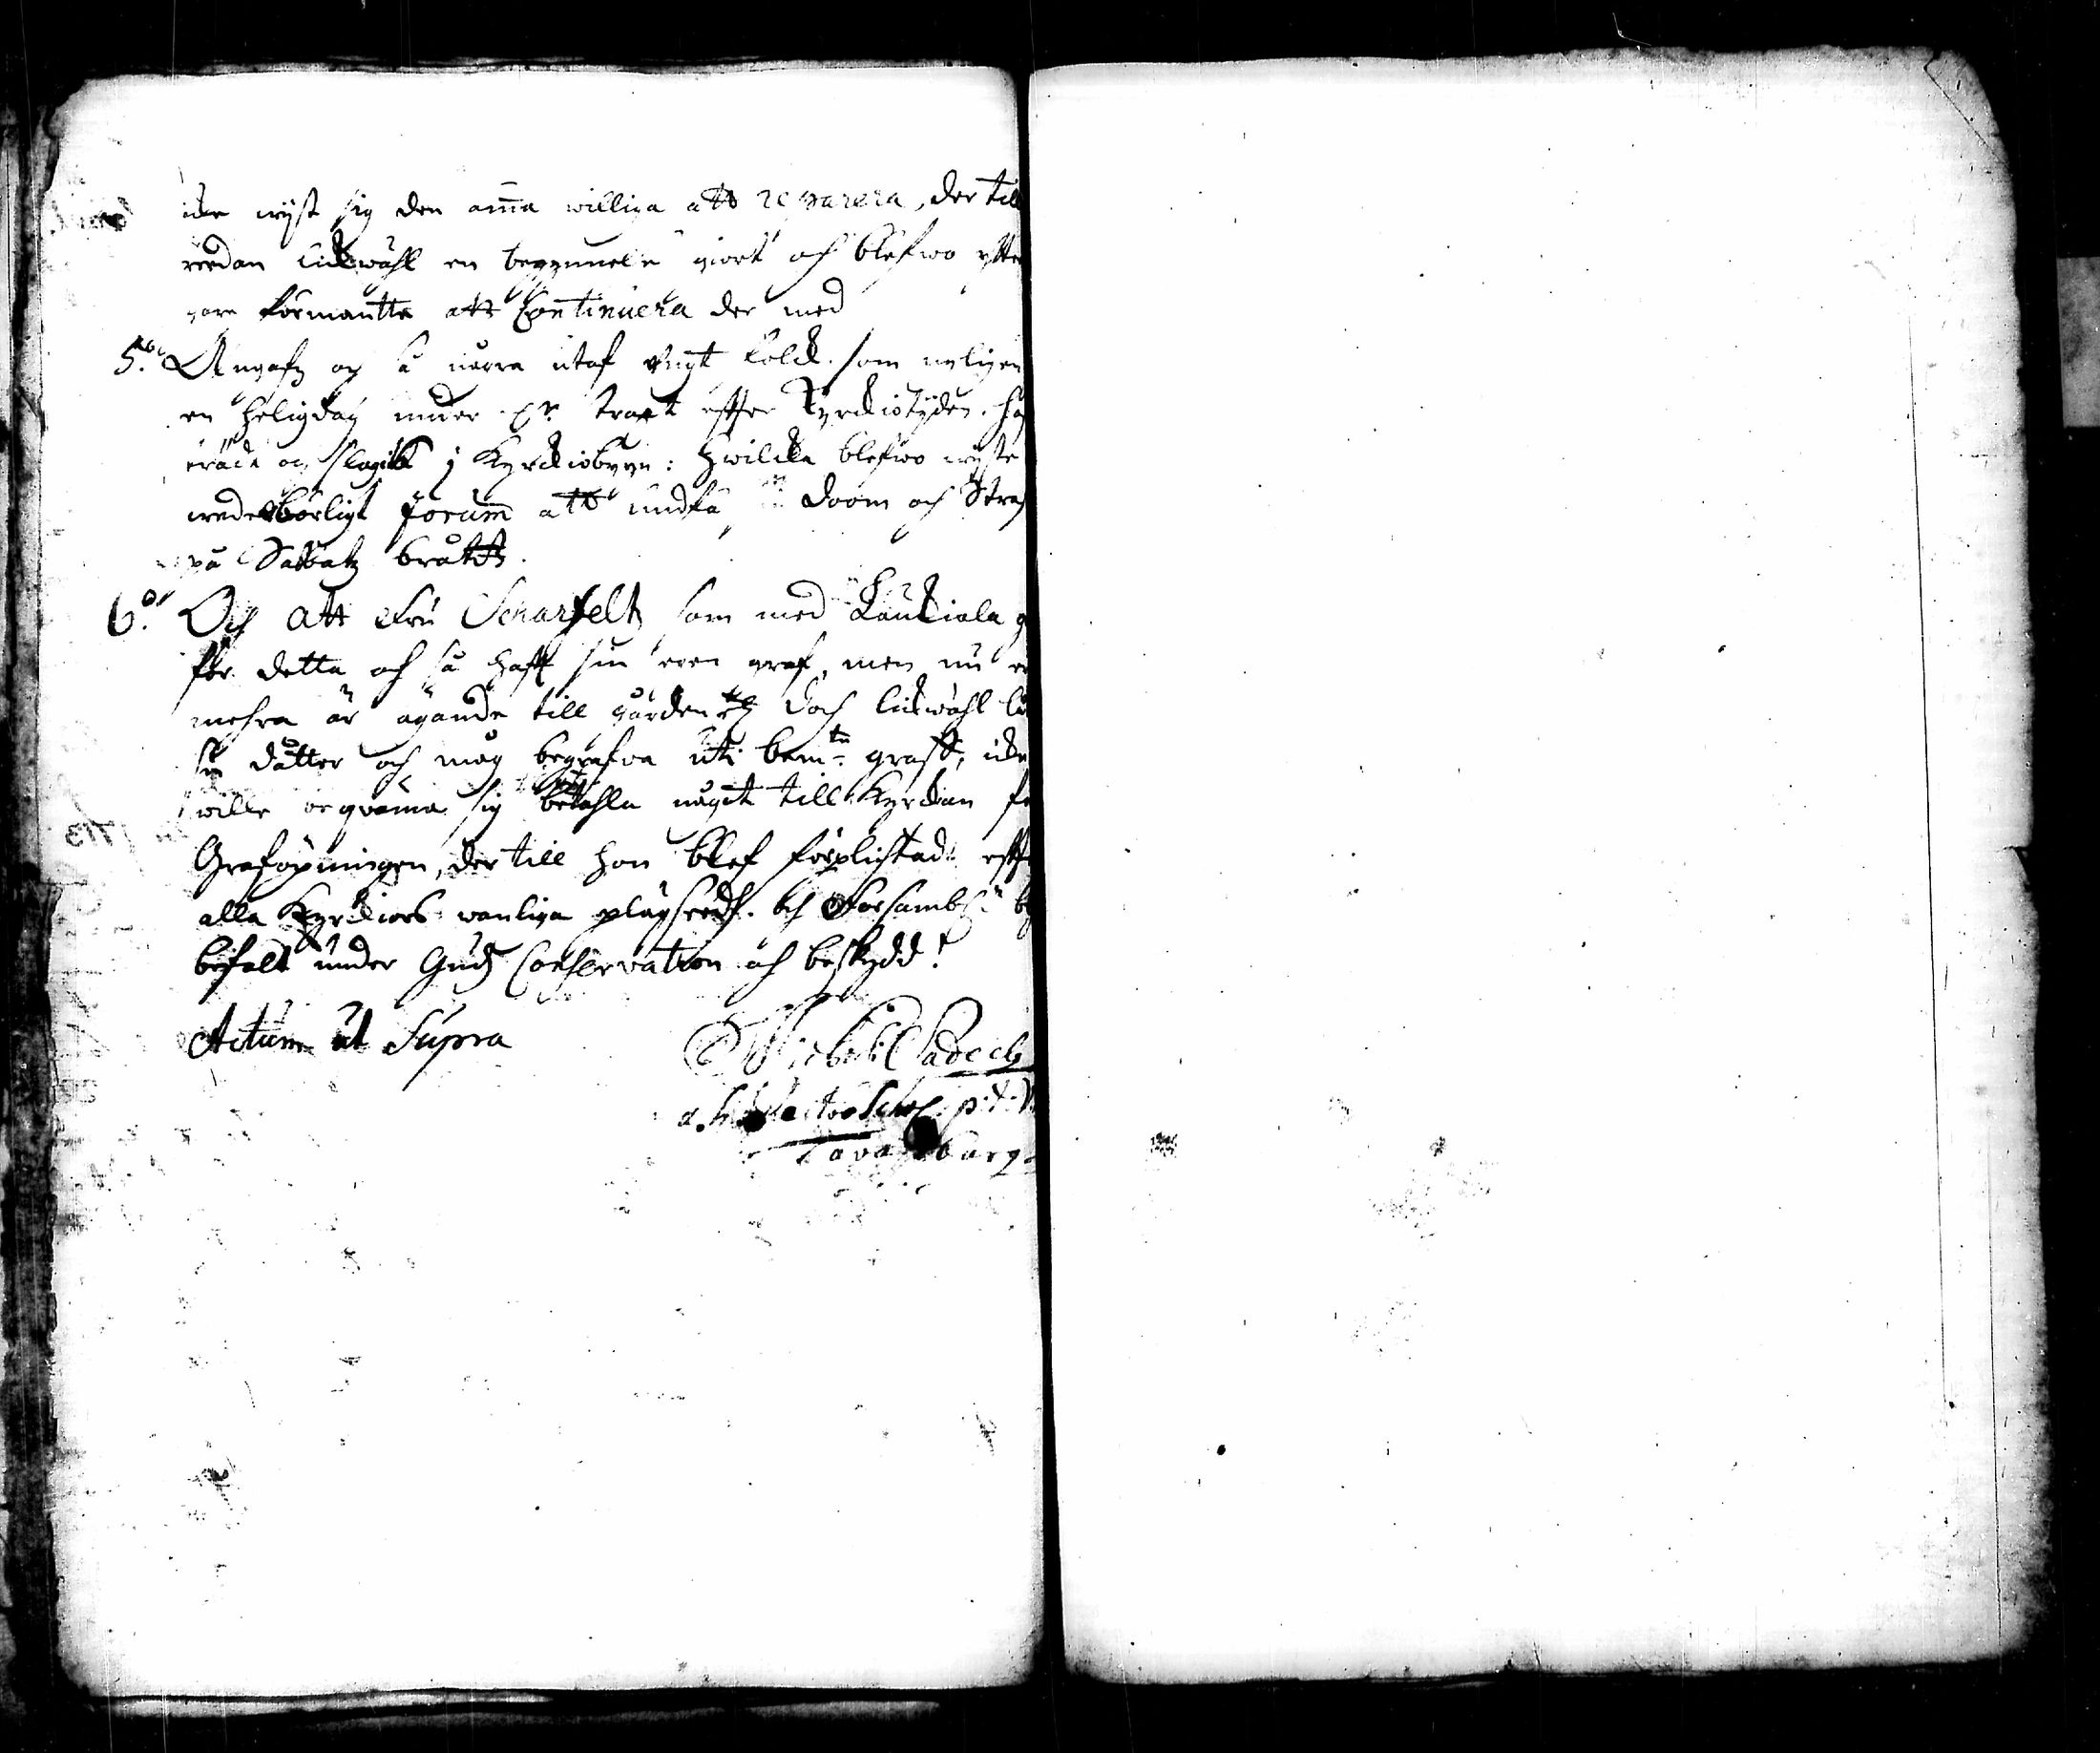 icke wijst sig den ama williga att reparera, der till
reedan lickwähl en begynnelse giort och blefwo ytte
gare förmante att Continuera der med
5.to Angafz och så några utaf ungt folck som nyligen
en heligdag under Ex: tract efter Kyrckiotijden haf
slagitz j Kyrckiobyyn: hwilcka blefwo wijste
wederbörligt forum att undfå doom och Straf
på Sabbatz brått.
6.to Och att Fru Scharfelt som med Lauckiala g
för detta och så hafft sin egen graf, men nu ey
mehra är ägande till gården etc doch lickwähl låt
sin dåtter och måg begrafva uti bem:te grafft, icke
wille beqväma sig att betahla något till Kyrckian fö
Graföpningen, der till hon blef förplichtad effte
alla Kyrckiors wanliga plägseedh. och Försambl:n b
befalt under Gudz Conservation och beskydd!
Actum ut Supra
Michael Padech
Rector Schol. p. t.
Tavastburg